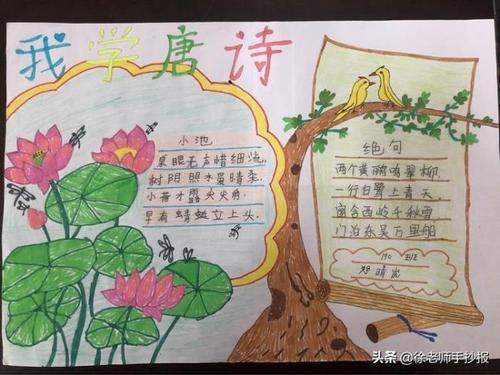 我学唐诗
小池
泉眼无声惜细流，
树阴照水爱晴柔，
小荷才露尖尖角，
早有蜻蜓立上头，
绝句
两个黄鹂鸣翠柳，
一行白鹭上青天，
窗含西岭千秋雪
门泊东吴万里船
头条 @徐老师手抄报